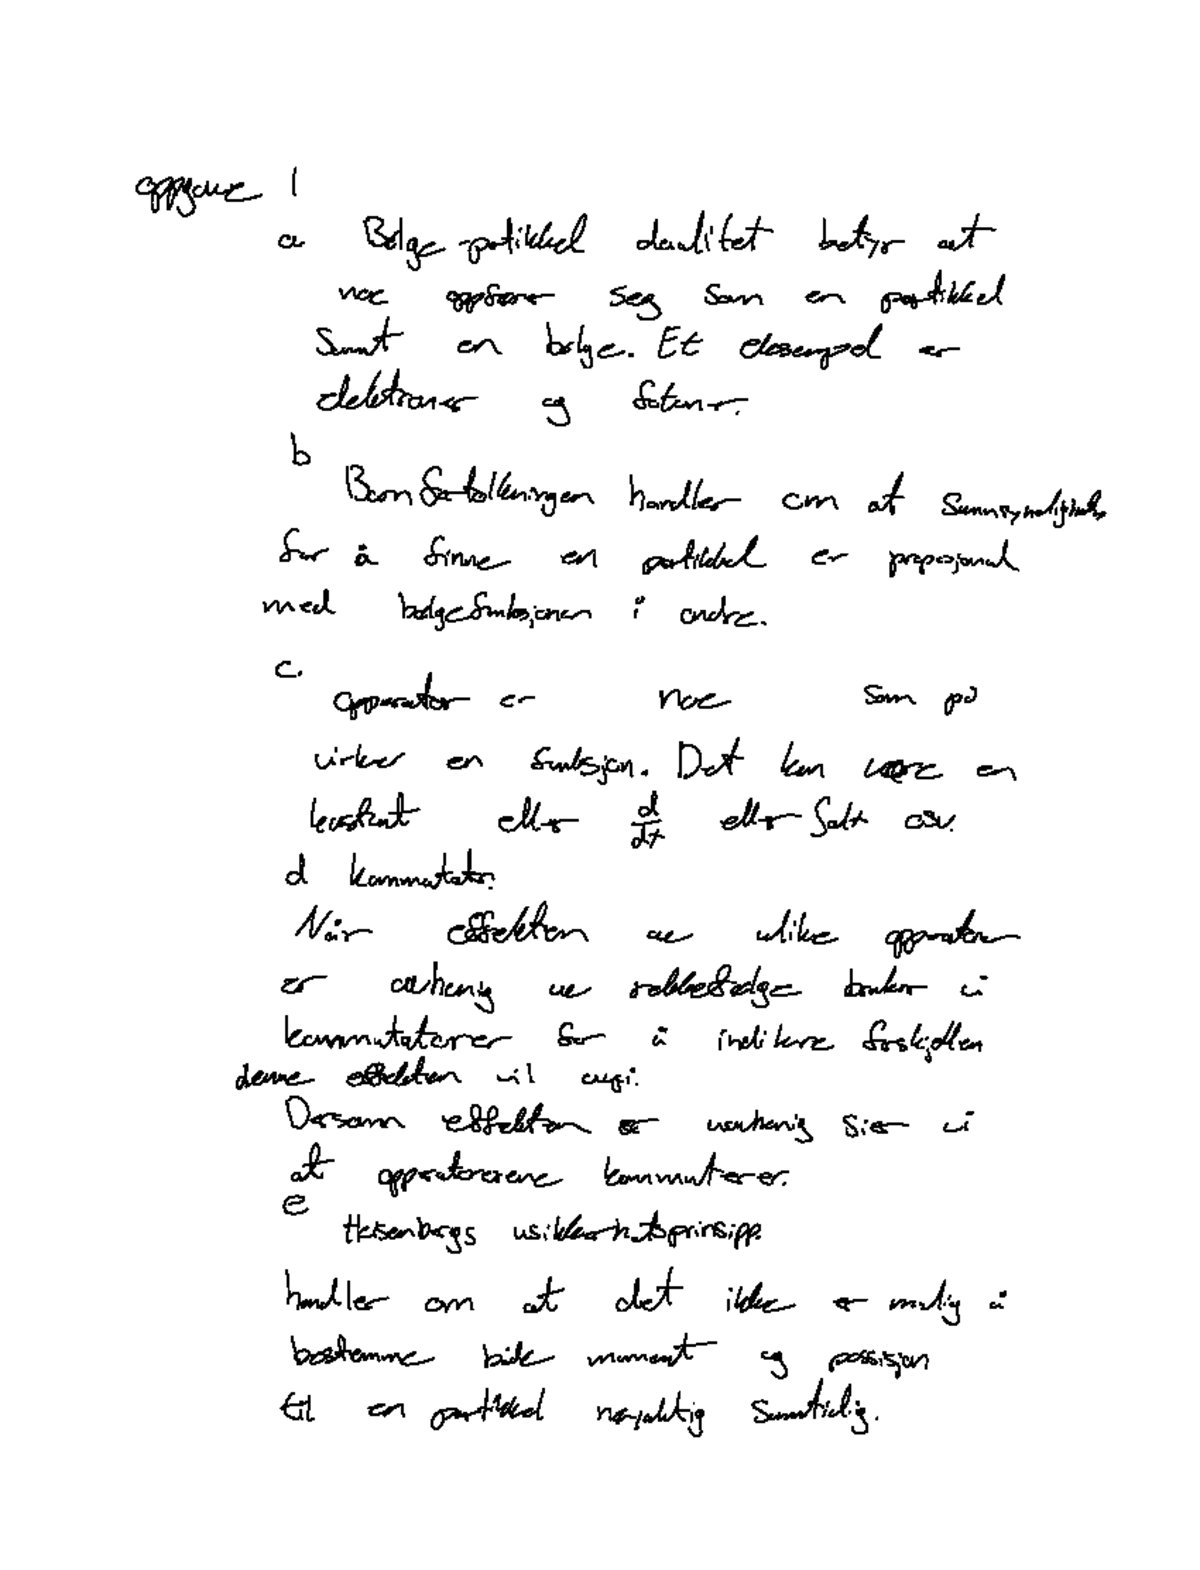 oppgave 1
a Bølge-partikkel dualitet betyr at
noe oppfører seg som en partikkel
samt en bølge. Et eksempel er
elektroner og fotoner.
b
Born fortolkningen handler om at sannsynligheten
for å finne en partikkel er proposjonal
med bølgefunksjonen i andre.
c.
operator er noe som på
virker en funksjon. Det kan være en
konstant eller d/dx eller falt osv.
d kommutator:
Når effekten av ulike operatorer
er avhenig av rekkefølge bruker vi
kommutatorer for å indikere forskjellen
denne effekten vil avgi.
Dersom effekten er uavhenig sier vi
at opperatorerene kommuterer.
e
Heisenbergs usikkerhetsprinsipp
handler om at det ikke er mulig å
bestemme både moment og possisjon
til en partikkel nøyaktig samtidig.